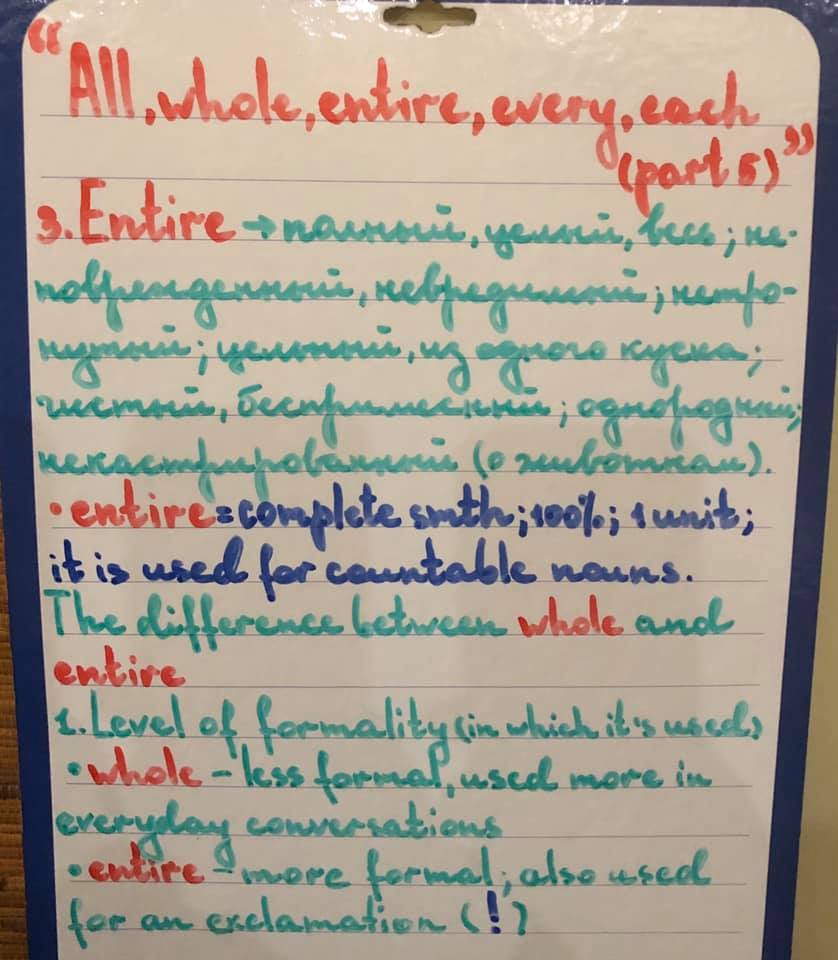 “All, whole, entire, every, each
(part 5)”
3. Entire → полный, целый, весь; не-
повреждённый, невредимый; нетро-
нутый; цельный, из одного куска;
чистый, беспримесный; однородный;
некастрированный (о животном).
• entire = complete smth; 100%; 1 unit;
it is used for countable nouns.
The difference between whole and
entire
1. Level of formality (in which it's used)
• whole – less formal, used more in
everyday conversations
• entire – more formal; also used
for an exclamation (!)